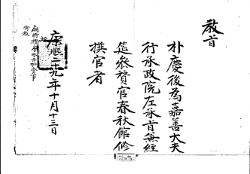 教旨
朴慶後爲嘉善大夫
行承政院左承旨兼經
筵參贊官春秋館修
撰官者
康熙二十九年十月十三日